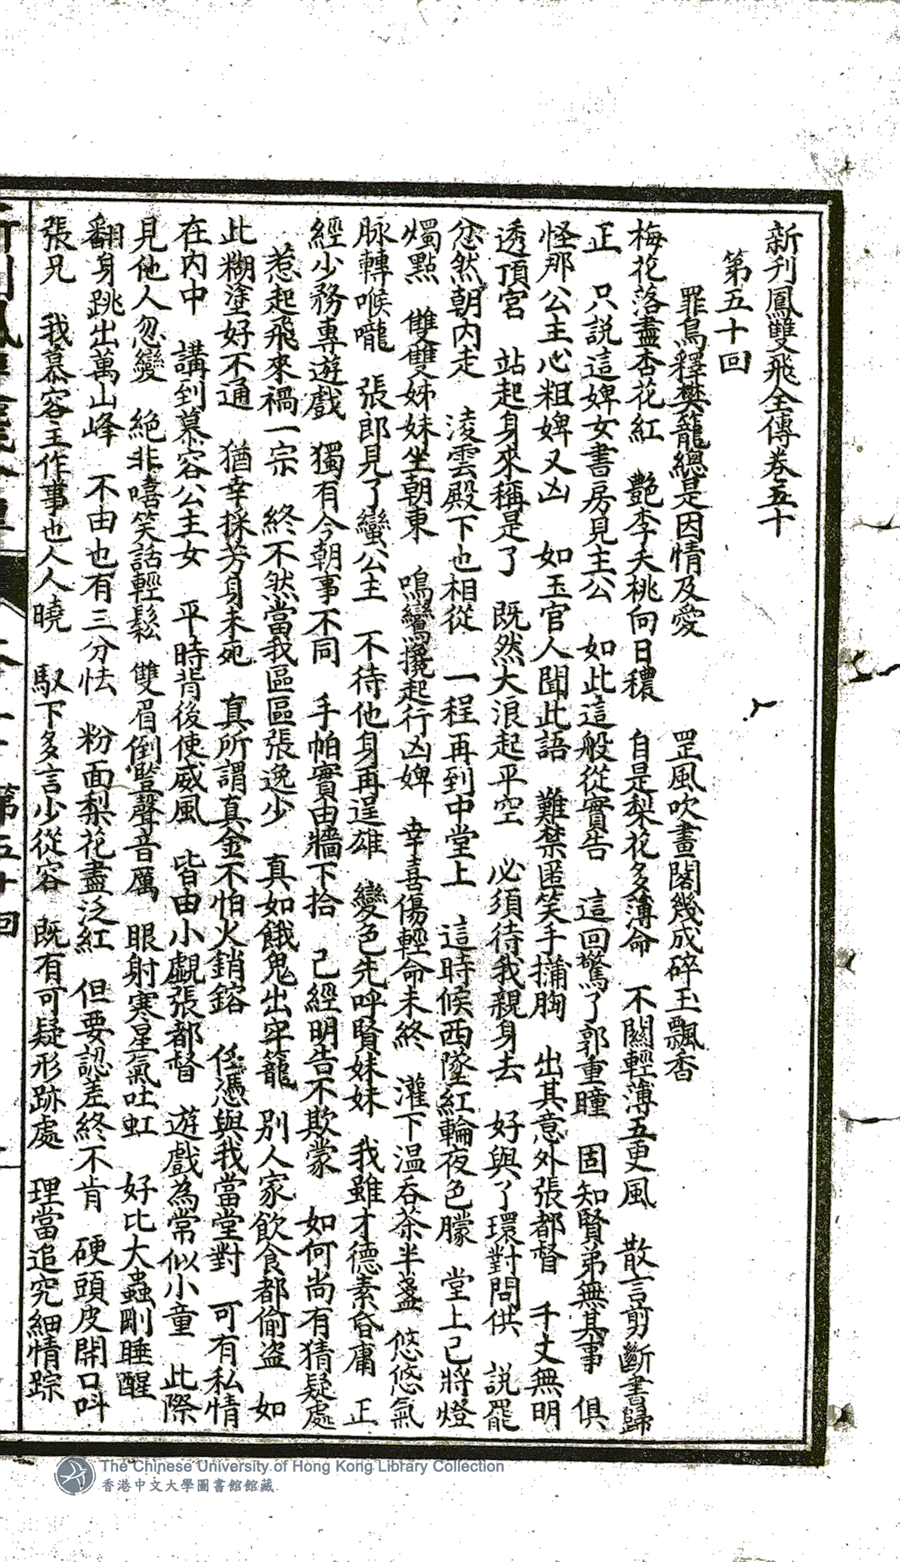 新刋鳳雙飛全傳卷五十
第五十回
罪鳥釋樊籠總是因情及愛　罡風吹畫閣幾成碎玉飄香
梅花落盡杏花紅　艷李夭桃向日穠　自是梨花多薄命　不關輕薄五更風　散言剪斷書歸
正　只說這婢女書房見主公　如此這般從實告　這回驚了郭重瞳　固知賢弟無其事　俱
怪那公主心粗婢又凶　如玉官人聞此語　難禁匿笑手捕胸　出其意外張都督　千丈無明
透頂宮　站起身來稱是了　既然大浪起平空　必須待我親身去　好與了環對問供　說罷
忿然朝內走　淩雲殿下也相從　一程再到中堂上　這時候西墜紅輪夜色朦　堂上已將燈
燭點　雙雙姊妹坐朝東　鳴鸞攙起行凶婢　幸喜傷輕命未終　灌下温吞茶半盞　悠悠氣
脉轉喉嚨　張郎見了蠻公主　不待他身再逞雄　變色先呼賢妹妹　我雖才德素昏庸　正
經少務專遊戲　獨有今朝事不同　手帕實由牆下拾　已經明告不欺蒙　如何尚有猜疑處
惹起飛來禍一宗　終不然當我區區張逸少　真如餓鬼出牢籠　別人家飲食都偷盜　如
此糊塗好不通　猶幸採芳身未死　真所謂真金不怕火銷鎔　任憑與我當堂對　可有私情
在內中　講到慕容公主女　平時背後使威風　皆由小覷張都督　遊戲為常似小童　此際
見他人忽變　絕非嘻笑話輕鬆　雙眉倒豎聲音厲　眼射寒星氣吐虹　好比大蟲剛睡醒
翻身跳出萬山峰　不由也有三分怯　粉面梨花盡泛紅　但要認差終不肯　硬頭皮開口呌
張兄　我慕容主作事也人人曉　馭下多言少從容　既有可疑形跡處　理當追究細情踪
The Chinese University of Hong Kong Library Collection
香港中文大學圖書館館藏